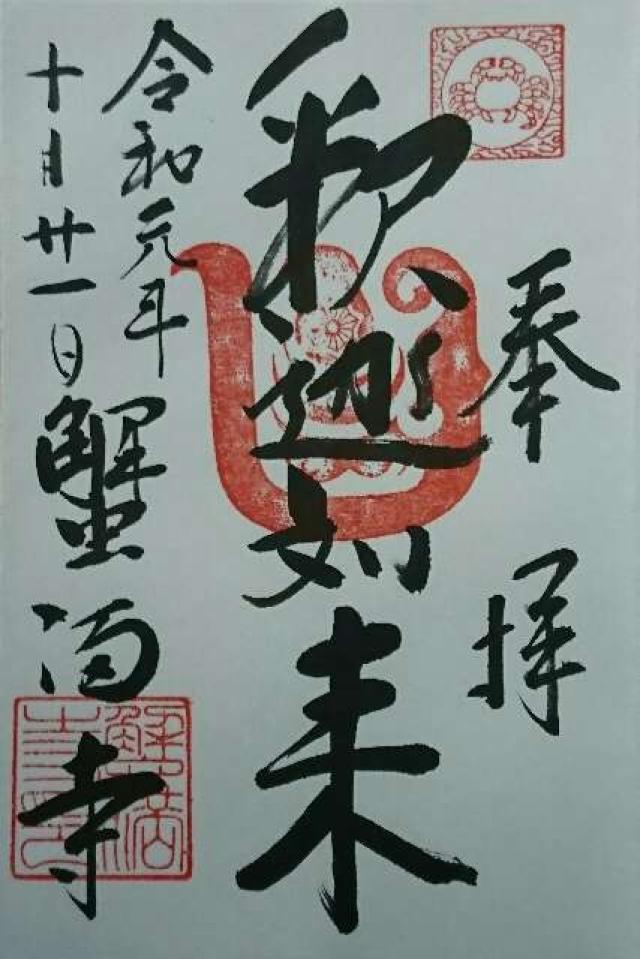 奉拝
釈迦如来
令和元年
十月廿一日
蟹満寺
蟹満寺印